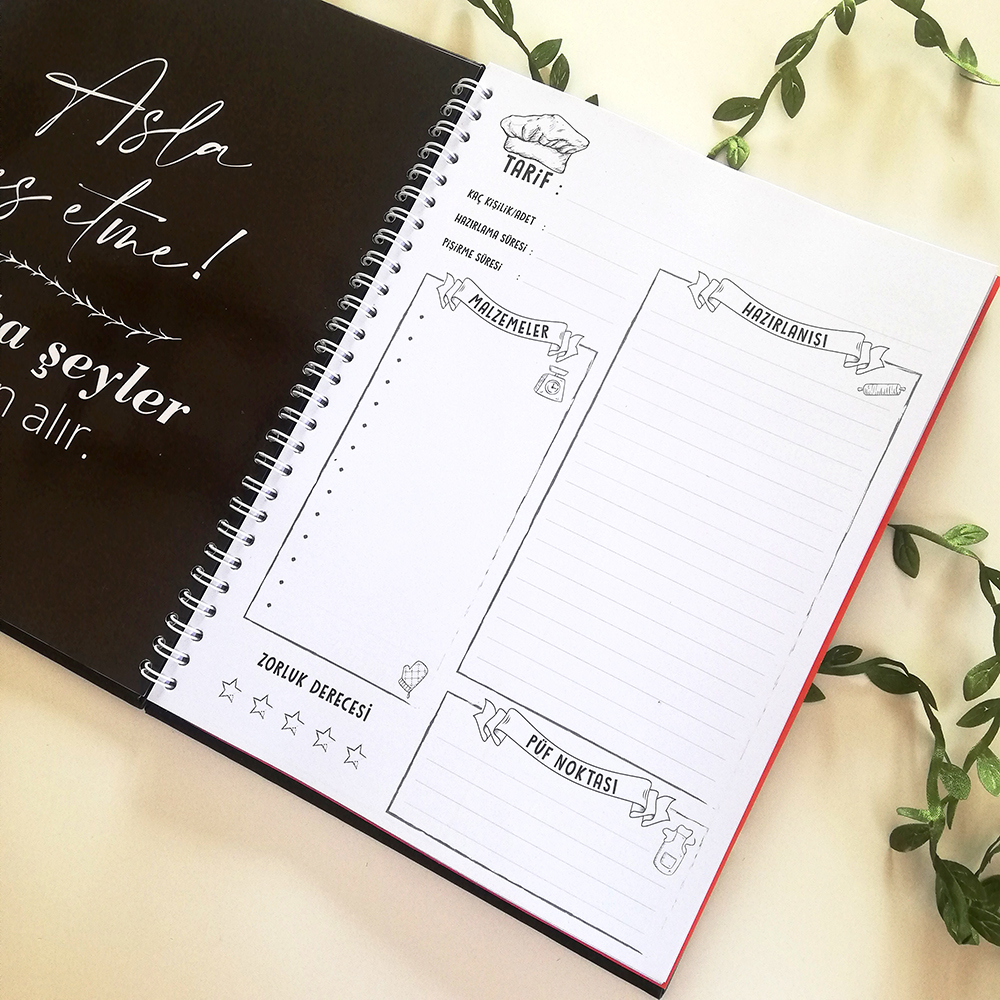 Asla
etme!
şeyler
alır.
TARİF :
KAÇ KİŞİLİK/ADET :
HAZIRLAMA SÜRESİ :
PİŞİRME SÜRESİ :
MALZEMELER
HAZIRLANISI
ZORLUK DERECESİ
PÜF NOKTASI